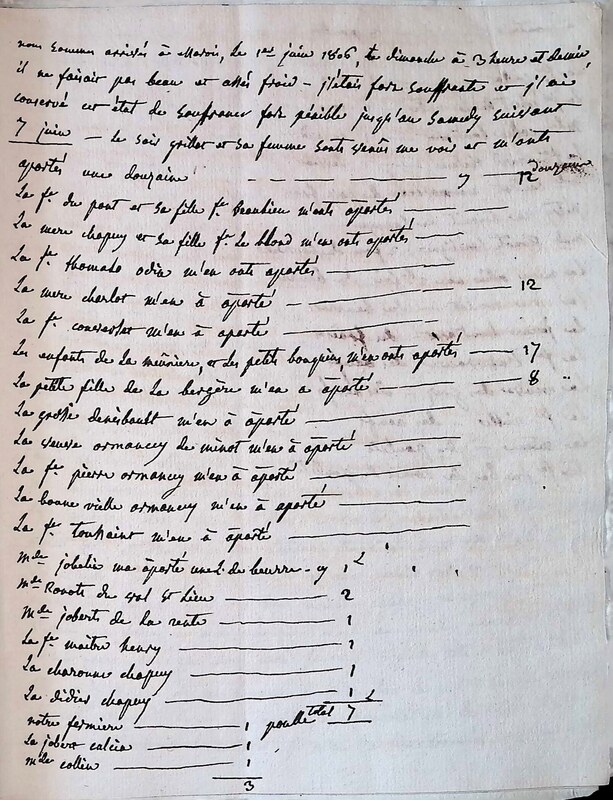 nous sommes arrivés à Maroi, le 1er juin 1806, le dimanche à 3 heure et demie,
il ne faisoit pas beau et assés froid - j'étais fort souffrante et j'ai
conservé cet état de souffrance fort pénible jusqu'au Samedy suivant
7 juin — le soir grillot et sa femme sonts venûs me voir et m'onts
aportés une douzaine — — 12 douzaine
La fe. du pont et sa fille fe. Beaubien m'onts âportés —
La mere chapuy et sa fille fe. Le blond m'en onts aportés —
La fe. thomase odin m'en onts aportés —
La mere charlot m'en à âporté — 12
La fe. m'en à aporté —
Les enfants de La mûniere, et des petits bouquins, m'en onts apôrtés — 17
La petite fille de La bergère m'en a âporté — 8
La grosse denisboult m'en à âporté —
La veuve ormancey de minot m'en à âporté —
La fe. pierre ormancey m'en à âporté —
La bonne vielle ormancey m'en à aporté —
La fe. toussaint m'en à âporté —
mde jobelin ma âporté une L. de beurre - 1 L
mde Ronote du val St Lieu — 2
mde joberts de La rente — 1
La fe. maitre henry — 1
La charonne chapuy — 1
La didier chapuy — 1 L
notre fermiere — 1 poulle total 7
La jobert calein — 1
mde collin — 1
3